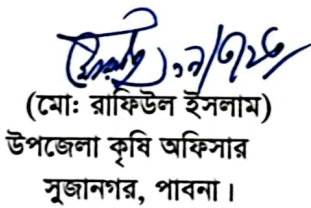 (মো: রাফিউল ইসলাম)
উপজেলা কৃষি অফিসার
সুজানগর, পাবনা।